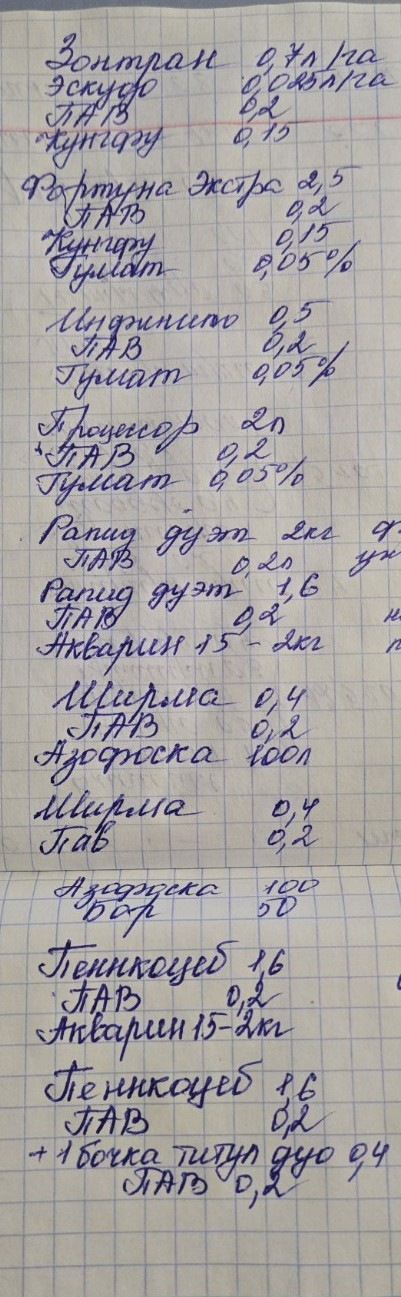 Зонтран 0,7л/га
Эскудо 0,025л/га
ПАВ 0,2
Кунгфу 0,15
Фортуна Экстра 2,5
ПАВ 0,2
Кунгфу 0,15
Гумат 0,05%
Инфинито 0,5
ПАВ 0,2
Гумат 0,05%
Процессор 2л
+ПАВ 0,2
Гумат 0,05%
Рапид дуэт 2кг
ПАВ 0,2л
Рапид дуэт 1,6
ПАВ 0,2
Акварин 15 - 2кг
Ширма 0,4
ПАВ 0,2
Азофоска 100л
Ширма 0,4
Пав 0,2
Азофоска 100
Бор 50
Пеннкоцеб 1,6
ПАВ 0,2
Акварин 15 - 2кг
Пеннкоцеб 1,6
ПАВ 0,2
+ 1 бочка титул дуо 0,4
ПАВ 0,2